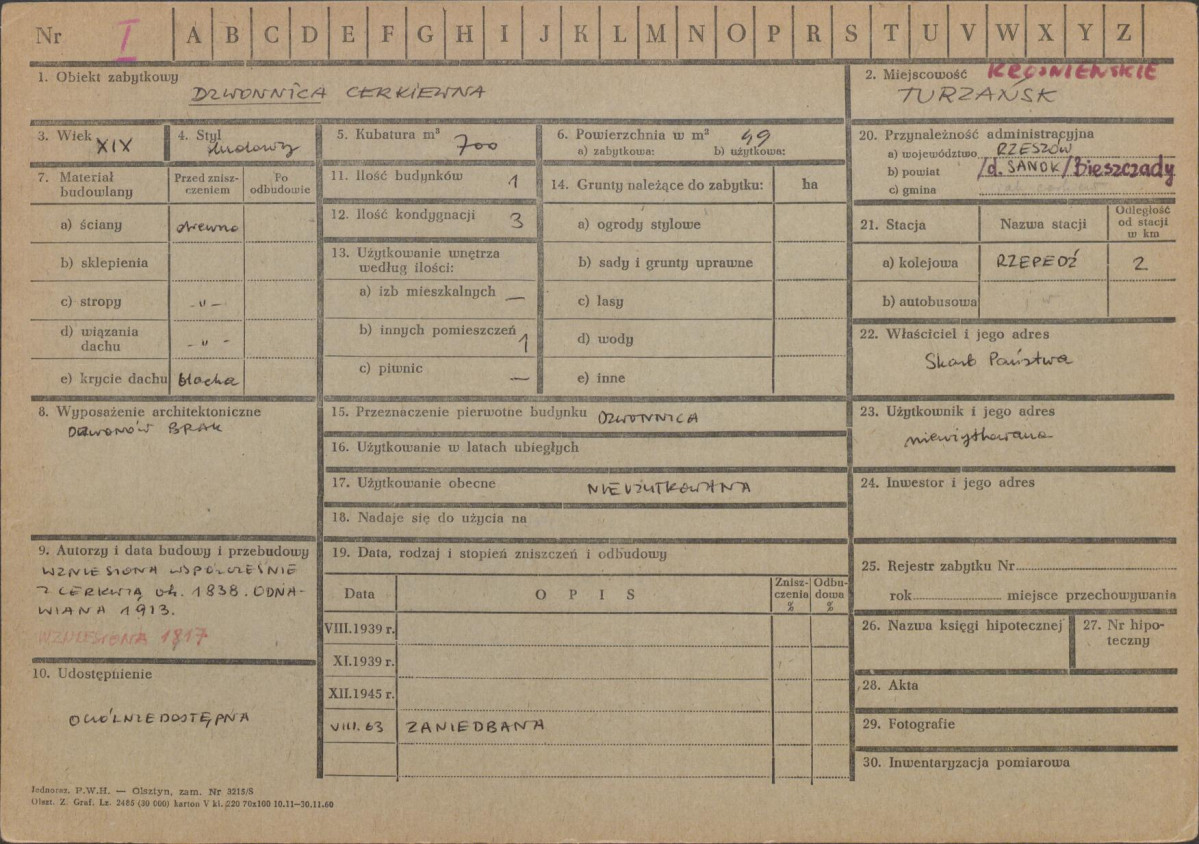 Nr I A B C D E F G H I J K L M N O P R S T U V W X Y Z
1. Obiekt zabytkowy
DZWONNICA CERKIEWNA
2. Miejscowość KROŚNIEŃSKIE
TURZAŃSK
3. Wiek XIX
4. Styl ludowy
5. Kubatura m³ 700
6. Powierzchnia w m² 49
a) zabytkowa: b) użytkowa:
7. Materiał budowlany
Przed znisz-
czeniem
Po
odbudowie
a) ściany drewno
b) sklepienia
c) stropy -"-
d) wiązania
dachu -"-
e) krycie dachu blacha
11. Ilość budynków 1
12. Ilość kondygnacji 3
13. Użytkowanie wnętrza
według ilości:
a) izb mieszkalnych —
b) innych pomieszczeń 1
c) piwnic —
14. Grunty należące do zabytku: ha
a) ogrody stylowe
b) sady i grunty uprawne
c) lasy
d) wody
e) inne
20. Przynależność administracyjna
a) województwo RZESZÓW
b) powiat /d. SANOK/Bieszczady
c) gmina
21. Stacja Nazwa stacji
Odległość
od stacji
w km
a) kolejowa RZEPEDŹ 2
b) autobusowa
22. Właściciel i jego adres
Skarb Państwa
8. Wyposażenie architektoniczne
DZWONÓW BRAK
15. Przeznaczenie pierwotne budynku DZWONNICA
16. Użytkowanie w latach ubiegłych
17. Użytkowanie obecne NIEUŻYTKOWANA
18. Nadaje się do użycia na
23. Użytkownik i jego adres
nieużytkowana
24. Inwestor i jego adres
9. Autorzy i data budowy i przebudowy
WZNIESIONA WSPÓŁCZEŚNIE
Z CERKWIĄ ok. 1838. ODNA-
WIANA 1913.
WZNIESIONA 1817
10. Udostępnienie
OGÓLNIE DOSTĘPNA
19. Data, rodzaj i stopień zniszczeń i odbudowy
Data OPIS
Znisz-
czenia
%
Odbu-
dowa
%
VIII.1939 r.
XI.1939 r.
XII.1945 r.
VIII. 63 ZANIEDBANA
25. Rejestr zabytku Nr
rok miejsce przechowywania
26. Nazwa księgi hipotecznej
27. Nr hipo-
teczny
28. Akta
29. Fotografie
30. Inwentaryzacja pomiarowa
Jednoraz. P.W.H. — Olsztyn, zam. Nr 3215/S
Olszt. Z. Graf. Lz. 2485 (30 000) karton V kl. 220 70x100 10.11—30.11.60